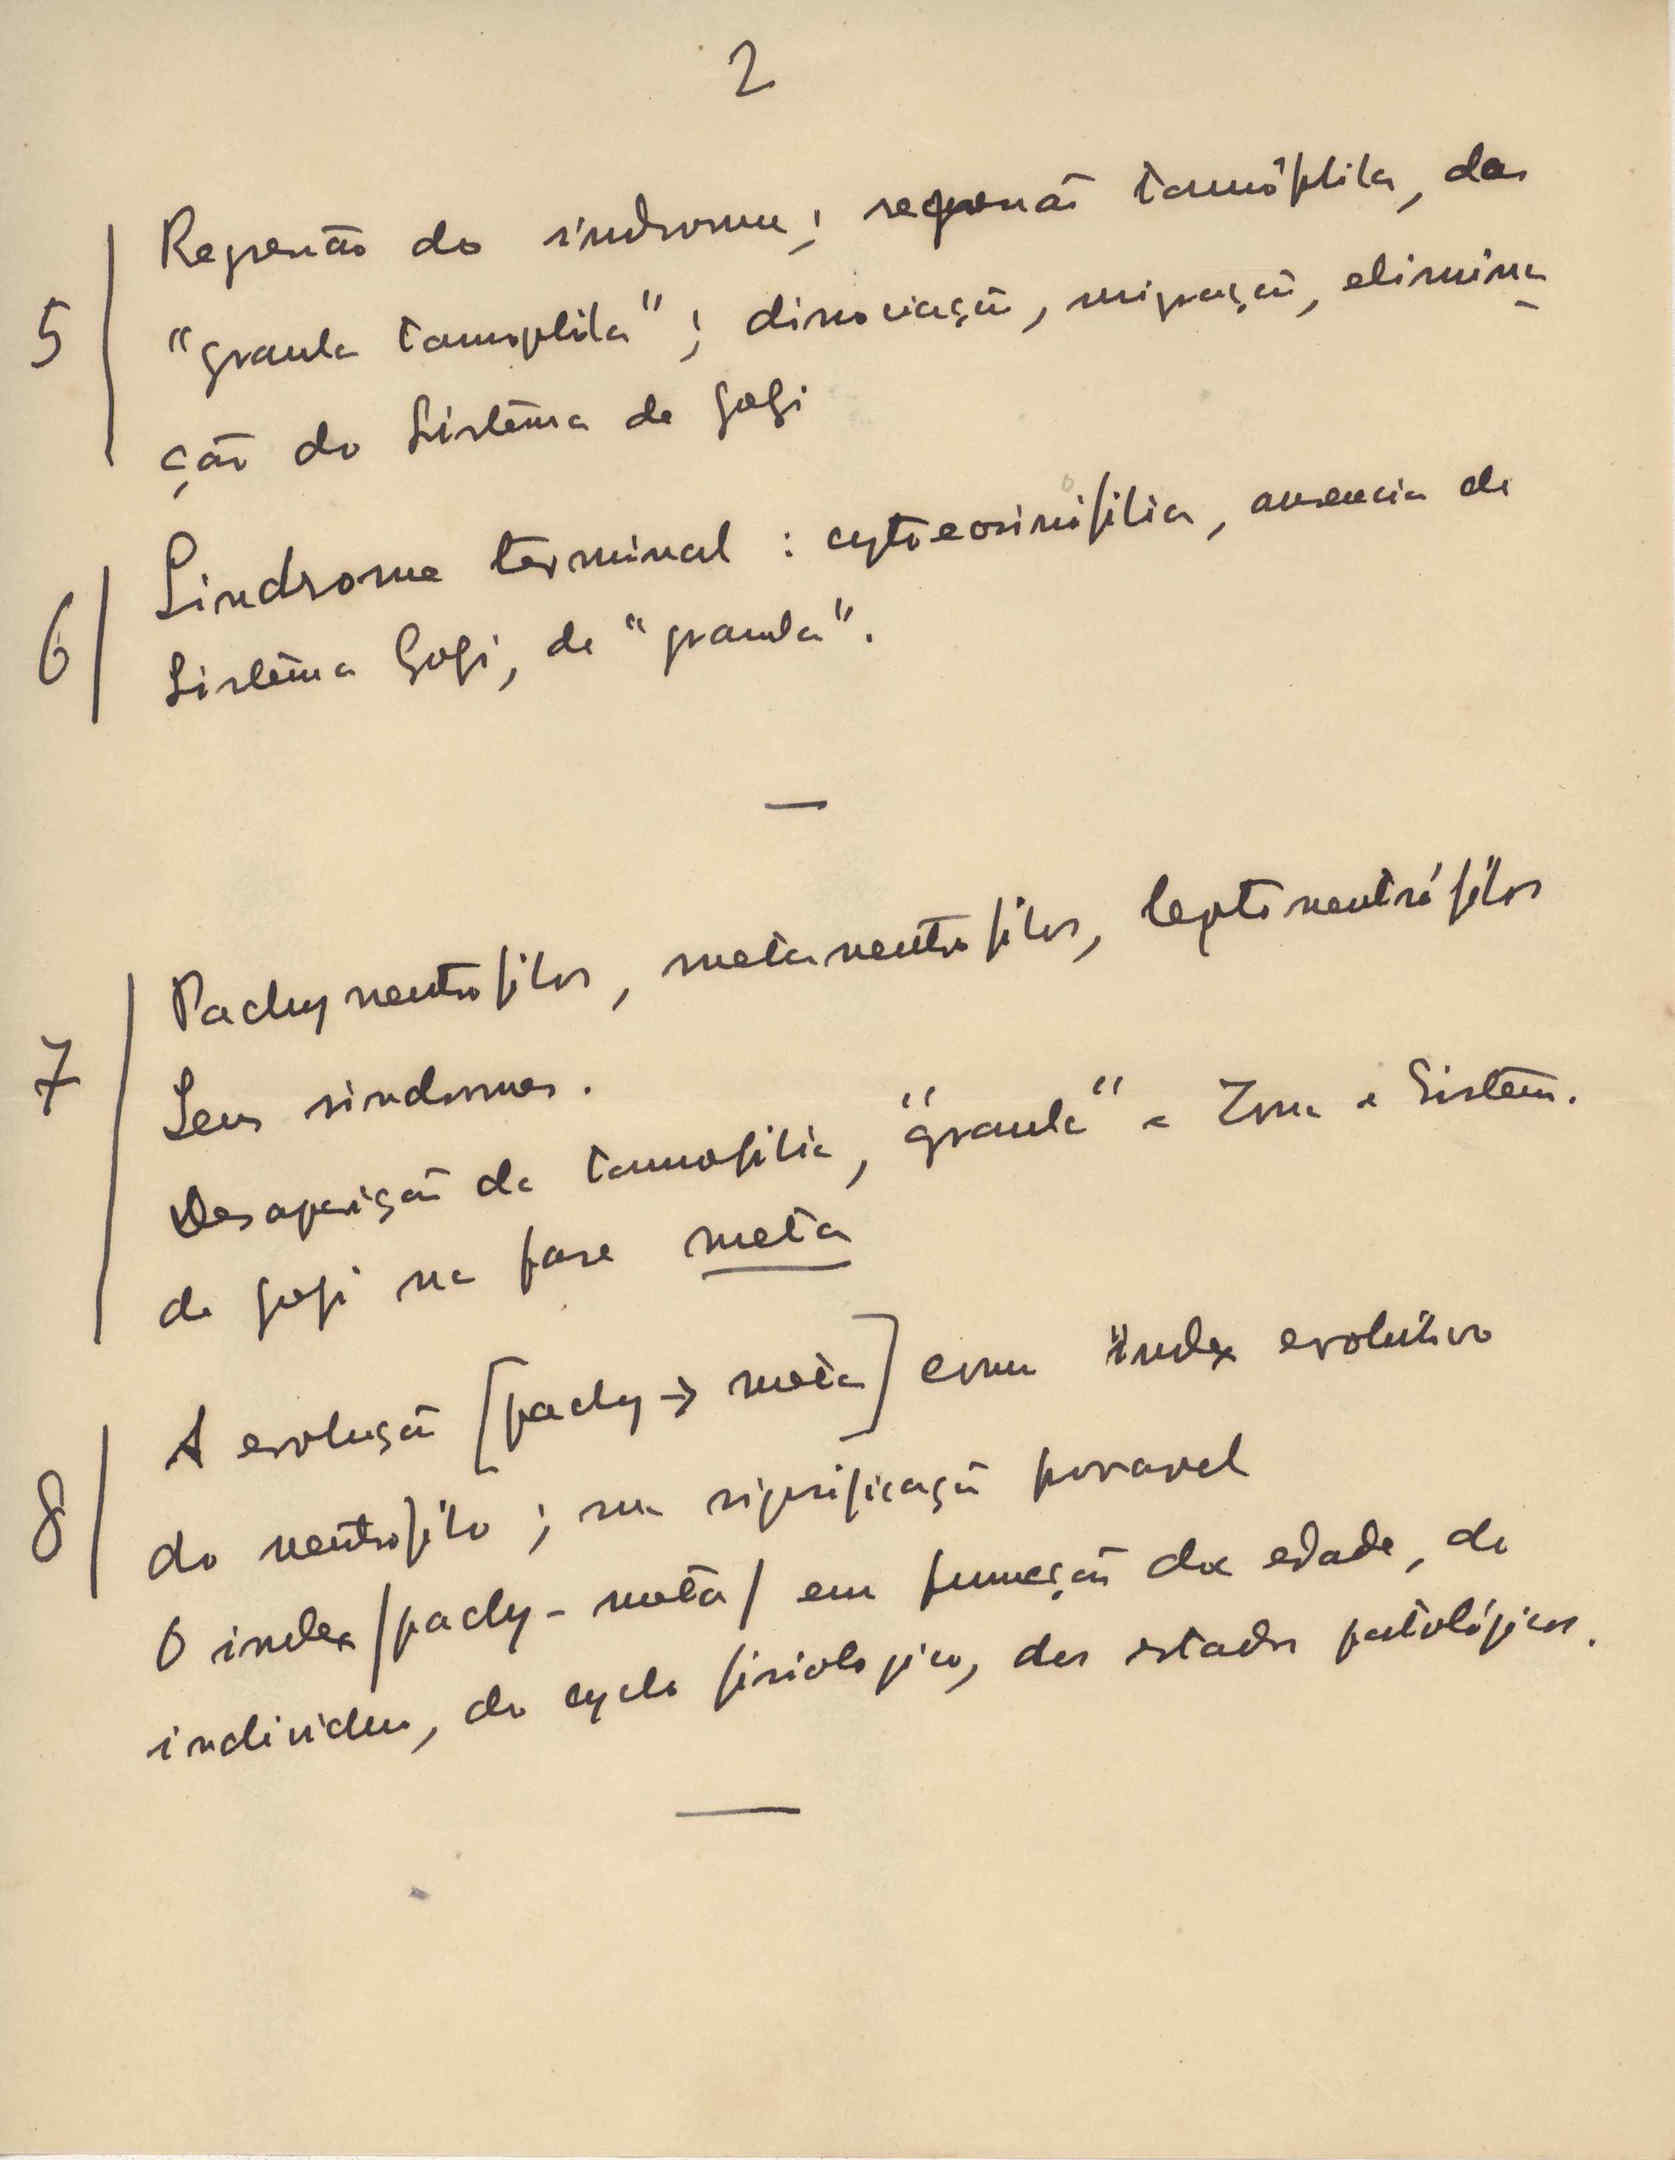 2
5 Regressão do síndrome; regressão tannóphila, das
"granula tannophila"; dissociação, migração, elimina-
ção do Sistêma de Golgi
6 Sindrome terminal : cytoeosinófilia, ausencia de
Sistêma Golgi, de "granula".
—
7 Pachyneutrofilos, metaneutrofilos, leptoneutrófilos
Seus sindromes.
Desaparição da tannofilia, "granula" e Zona e Sistêm.
de Golgi na fase meta
8 A evolução [pachy → meta] como index evolutivo
do neutrofilo ; sua significação provavel
O index / pachy - meta / em funcção da edade, do
individuo, do cyclo fisiologico, dos estados patológicos.
—